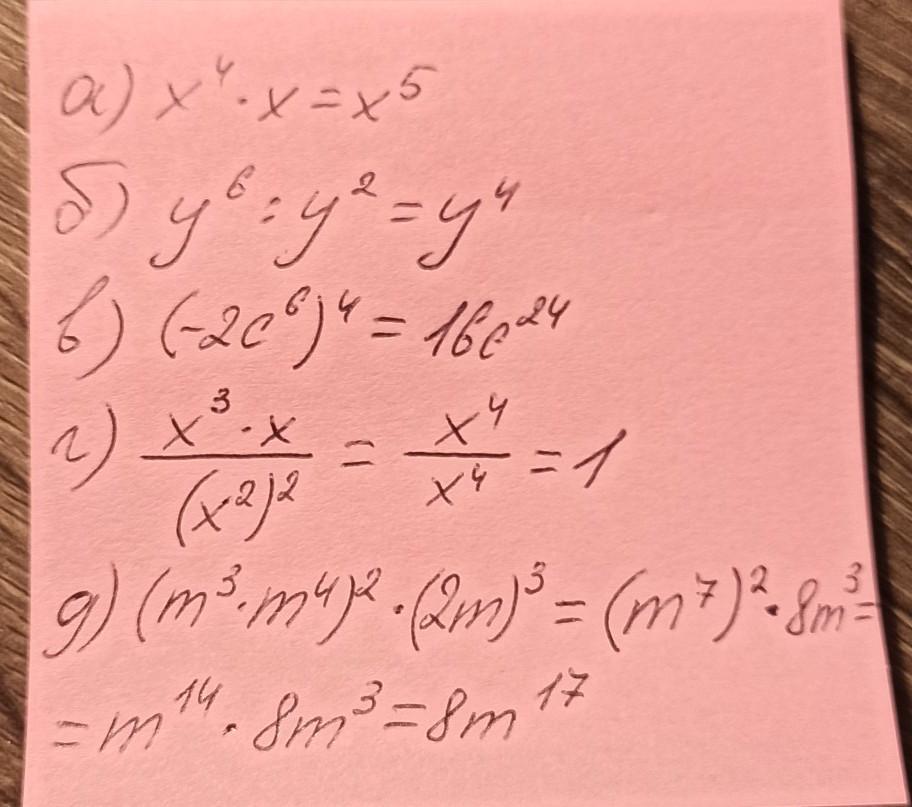 а) x⁴ · x = x⁵
б) y⁶ : y² = y⁴
в) (-2c⁶)⁴ = 16c²⁴
г) \frac{x³ · x}{(x²)²} = \frac{x⁴}{x⁴} = 1
д) (m³ · m⁴)² · (2m)³ = (m⁷)² · 8m³ =
= m¹⁴ · 8m³ = 8m¹⁷